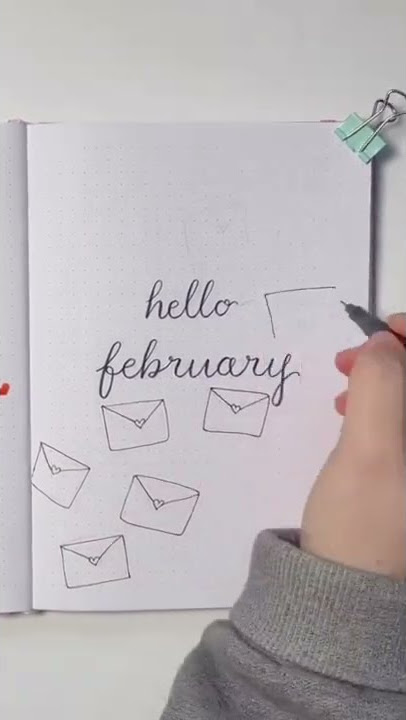 hello
february